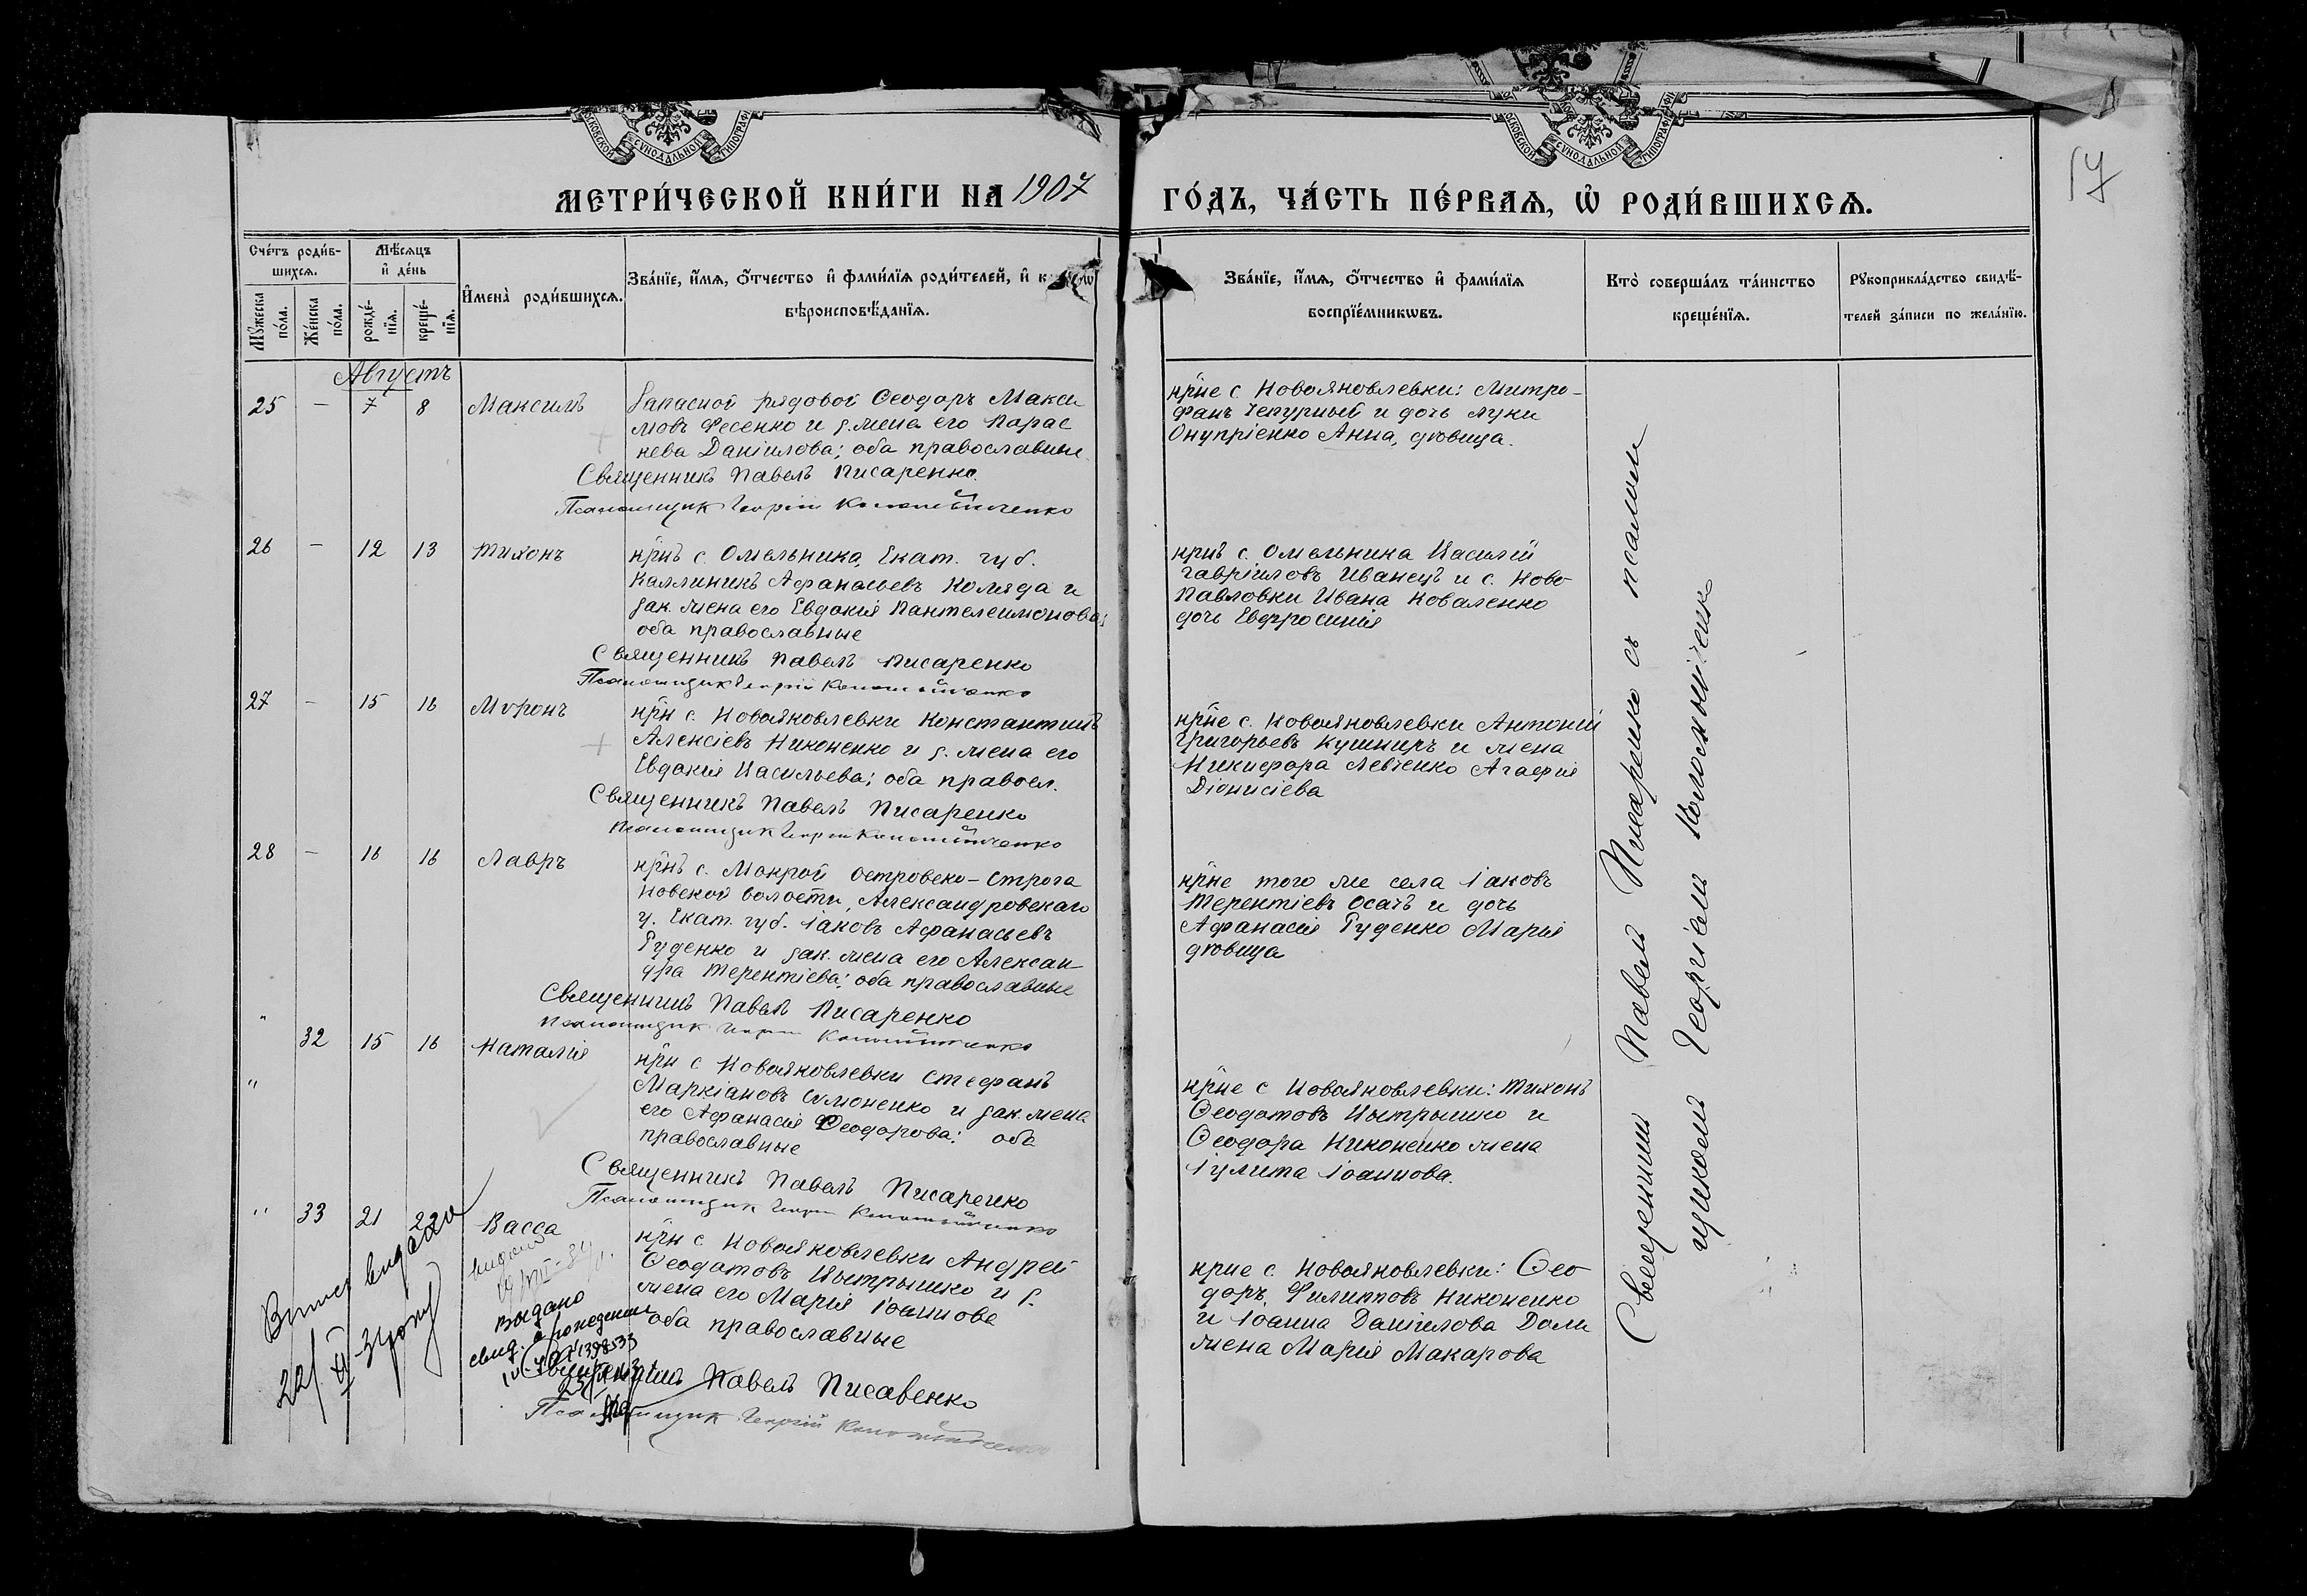 МОСКОВСКОЙ СѴНОДАЛЬНОЙ ТИПОГРАФІИ
МОСКОВСКОЙ СѴНОДАЛЬНОЙ ТИПОГРАФІИ
17
МЕТРИ́ЧЕСКОЙ КНИ́ГИ НА 1907 ГО́ДЪ, ЧА́СТЬ ПЕ́РВАЯ, Ѡ҆ РОДИ́ВШИХСѦ.
Сче́тъ роди́вшихсѧ.
Мꙋ́жеска по́ла.
Же́нска по́ла.
Мѣ́сѧцъ и҆ де́нь
рожде́нїѧ.
креще́нїѧ.
И҆мена̀ роди́вшихсѧ.
Зва́нїе, и҆́мѧ, ѻ҆́тчество и҆ фами́лїѧ роди́телей, и҆
вѣроисповѣ́данїѧ.
Зва́нїе, и҆́мѧ, ѻ҆́тчество и҆ фами́лїѧ
воспрїе́мникѡвъ.
Кто̀ соверша́лъ та́инство
креще́нїѧ.
Рꙋкоприкла́дство свидѣ́-
телей за́писи по жела́нїю.
Августъ
25 — 7 8 Максимъ
Запасной рядовой Ѳеодоръ Макси
мовъ Фесенко и з. жена его Парас
кева Даніилова; оба православные
Священникъ Павелъ Писаренко.
Псаломщик Георгій Коломійченко
крне с. Новояковлевки: Митро-
фанъ Чепурный и дочь Луки
Онупріенко Анна, дѣвица.
26 — 12 13 Тихонъ
крнъ с. Омельника, Екат. губ.
Каллиникъ Афанасьевъ Коляда и
зак. жена его Евдокія Пантелеимонова;
оба православные
Священникъ Павелъ Писаренко
Псаломщик Георгій Коломійченко
крнъ с. Омельника Василій
Гавріиловъ Иванецъ и с. Ново-
Павловки Ивана Коваленко
дочь Евфросинія
27 — 15 16 Миронъ
крн с. Новояковлевки Константинъ
Алексіевъ Никоненко и з. жена его
Евдокія Васильева; оба правосл.
Священникъ Павелъ Писаренко
Псаломщик Георгій Коломійченко
крне с. Новояковлевки Антоній
Григорьевъ Кушниръ и жена
Никифора Левченко Агафія
Діонисіева
28 — 16 16 Лавръ
крнъ с. Мокрой островско-Строга
новской волости, Александровскаго
у. Екат. губ. Іаковъ Афанасьевъ
Руденко и зак. жена его Алексан-
дра Терентіева; оба православные
Священникъ Павелъ Писаренко
Псаломщик Георгій Коломійченко
крне того же села Іаковъ
Терентіевъ Осачъ и дочь
Афанасія Руденко Марія
дѣвица
" 32 15 16 Наталія
крн с Новояковлевки Стефанъ
Маркіановъ Симоненко и зак. жена
его Афанасія Ѳеодорова; оба
православные
Священникъ Павелъ Писаренко
Псаломщик Георгій Коломійченко
крне с Новояковлевки: Тихонъ
Ѳеодотовъ Цытрышко и
Ѳеодора Никоненко жена
Іулита Іоаннова.
" 33 21 22 Васса
крн с Новояковлевки Андрей
Ѳеодотовъ Цытрышко и з.
жена его Марія Іоаннова
оба православные
Священникъ Павелъ Писаренко
Псаломщик Георгій Коломійченко
крне с. Новояковлевки: Ѳео
доръ Филипповъ Никоненко
и Іоанна Даніилова Доли
жена Марія Макарова
видано
выдано
свид. о рождении
Священникъ Павелъ Писаренко съ псалом
щикомъ Георгіемъ Коломойченко